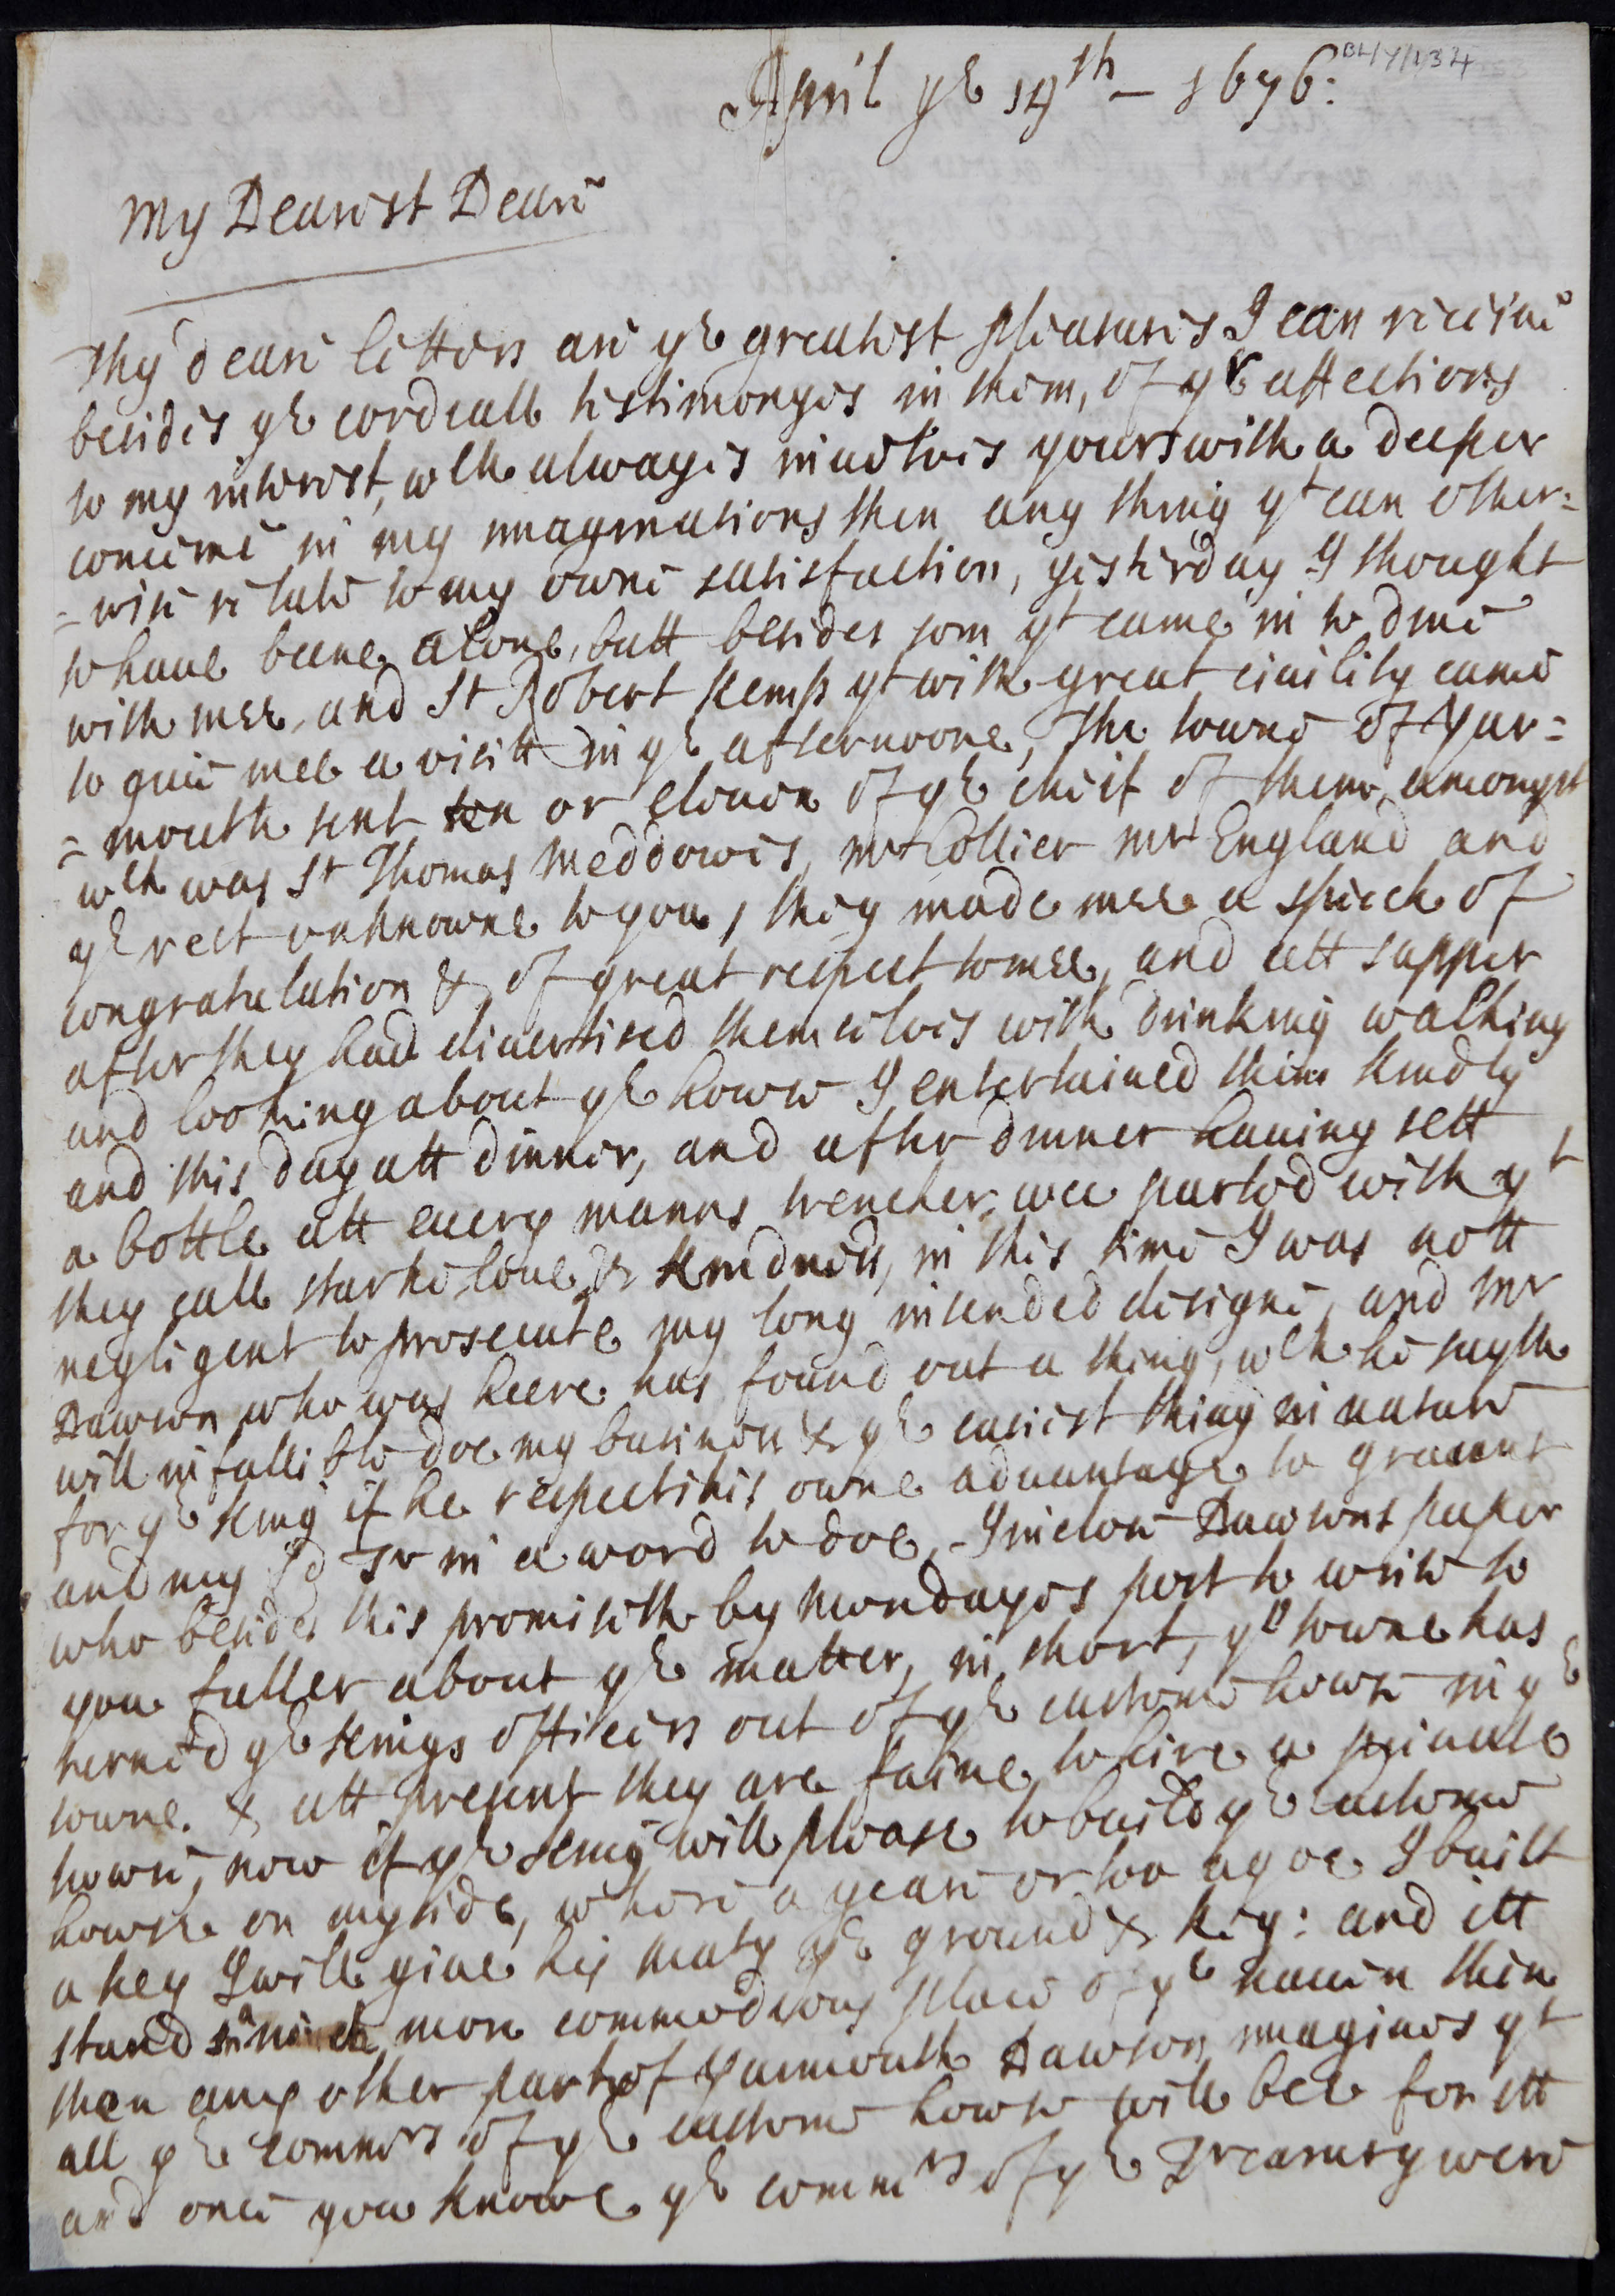 BL/Y/1/34
April ye 14th - 1676:
My Dearest Deare
Thy deare letters are ye greatest pleasures I can receive
besides ye cordeall testimonyes in them, of yr affections
to my interest, wch alwayes inuolves yours with a deeper
concerne in my imaginations then any thing yt can other=
=wise relate to my owne satisfaction, yesterday I thought
to haue beene alone, butt besides som yt came in to dine
with mee, and Sr Robert Kemp yt with great ciuility came
to giue mee a visitt in ye afternoone, The towne of Yar=
=mouth sent ten or eleuen of ye cheif of them, amongst
wch was Sr Thomas Meddowes, Mr Collier Mr England and
ye rest unknowne to you, they made mee a speech of
congratulation & of great respect to mee, and att supper
after they had diuertised themselves with drinking walking
and looking about ye howse I entertained them kindly
and this day att dinner, and after dinner hauing sett
a bottle att euery manns trencher, wee parted with yt
they call starke loue & kindness, in this time I was nott
negligent to prosecute my long intended designe, and Mr
Dawson who was heere has found out a thing, wch he sayth
will infallible doe my business & ye easiest thing in nature
for ye King if he respects his owne aduantage to graunt
and my Ld Tr in a word to doe, I inclose Dawsons paper
who besides this promiseth by Mondayes post to write to
you fuller about ye matter, in short, ye towne has
turned ye Kings officers out of ye custome howse in ye
towne. & att present they are faine to hire a priuate
howse, now if ye King will please to build ye custome
howse on my side, where a yeare or too agoe I built
a key I will giue his Maty ye ground & key: and itt
stands in more commodious place of ye hauen then
then any other part of Yarmouth Dawson imagines yt
all ye Commrs of ye custome howse will bee for itt
and once you knowe ye commrs of ye Treasury were